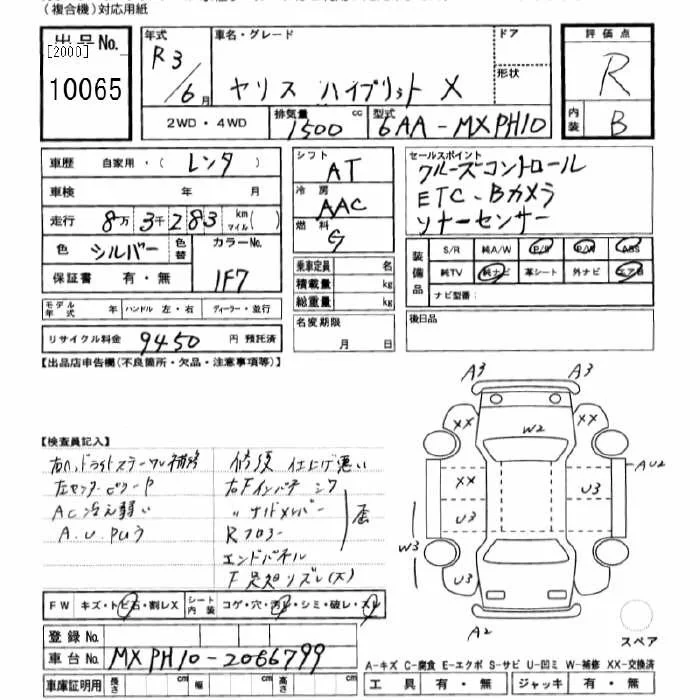 (複合機)対応用紙
出品No.
[2000]
10065
年式
R3/6月
車名・グレード
ヤリス ハイブリッド X
ドア
形状
評価点
R
内装
B
2WD・4WD
排気量
1500 cc
型式
6AA-MXPH10
車歴 自家用・(レンタ)
車検 年 月
走行 8万3千283 km マイル( )
色 シルバー
色替
カラーNo.
1F7
保証書 有・無
モデル年式 年 ハンドル 左・右 ディーラー・並行
リサイクル料金 9450 円 預託済
シフト
AT
冷房
AAC
燃料
G
乗車定員 名
積載量 kg
総重量 kg
名変期限
月 日
セールスポイント
クルーズコントロール
ETC・Bカメラ
ソナーセンサー
装備品
S/R 純A/W P/S P/W ABS
純TV 純ナビ 革シート 外ナビ エアB
ナビ型番:
後日品
【出品店申告欄(不良箇所・欠品・注意事項等)】
【検査員記入】
AC冷え弱い
A.U.PUう
修復 仕上げ悪い
右Fインパネ シワ
〃 サイドメンバー
Rフロアー
エンドパネル
歪
A3
A3
W2
XX
XX
XX
U3
U3
AU2
W3
U3
XX
A2
スペア
FW キズ・トビ石・割レX
シート内装 コゲ・穴・汚レ・シミ・破レ・スレ
登録No.
車台No. MXPH10-2066799
車庫証明用 長さ cm 幅 cm 高さ cm
A-キズ C-腐食 E-エクボ S-サビ U-凹ミ W-補修 XX-交換済
工具 有・無 ジャッキ 有・無